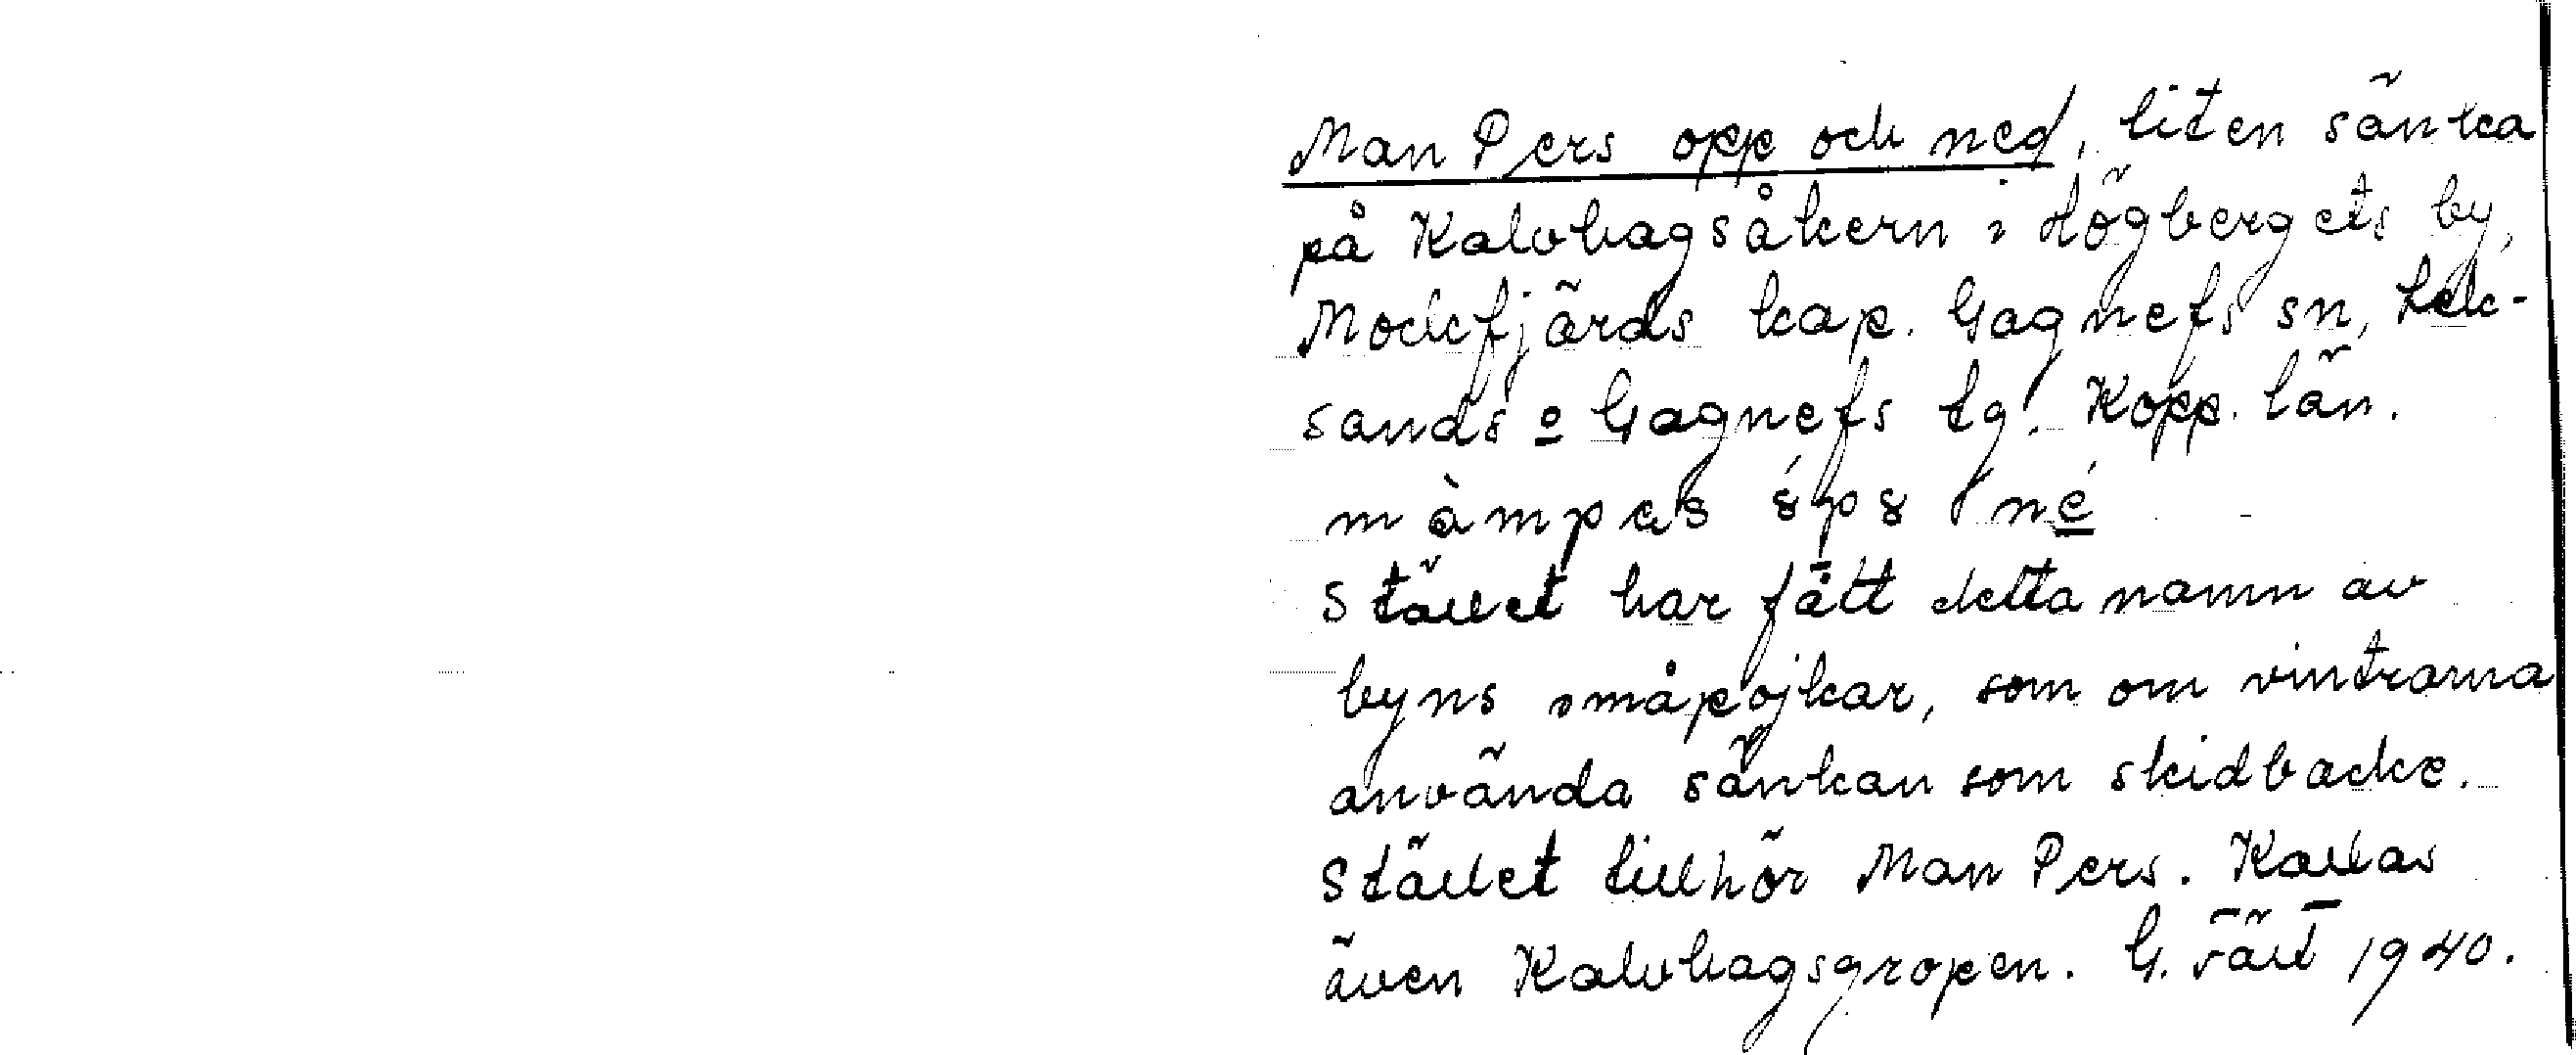 Man Pers opp och ned, liten sänka
på Kalvhagsåkern i Högbergets by,
Mockfjärds kap. Gagnefs sn, Lek-
sands o Gagnefs tg. Kopp. län.
Stället har fått detta namn av
byns småpojkar, som om vintrarna
använda sänkan som skidbacke.
Stället tillhör Man Pers. Kallas
även Kalvhagsgropen. G. 1940.